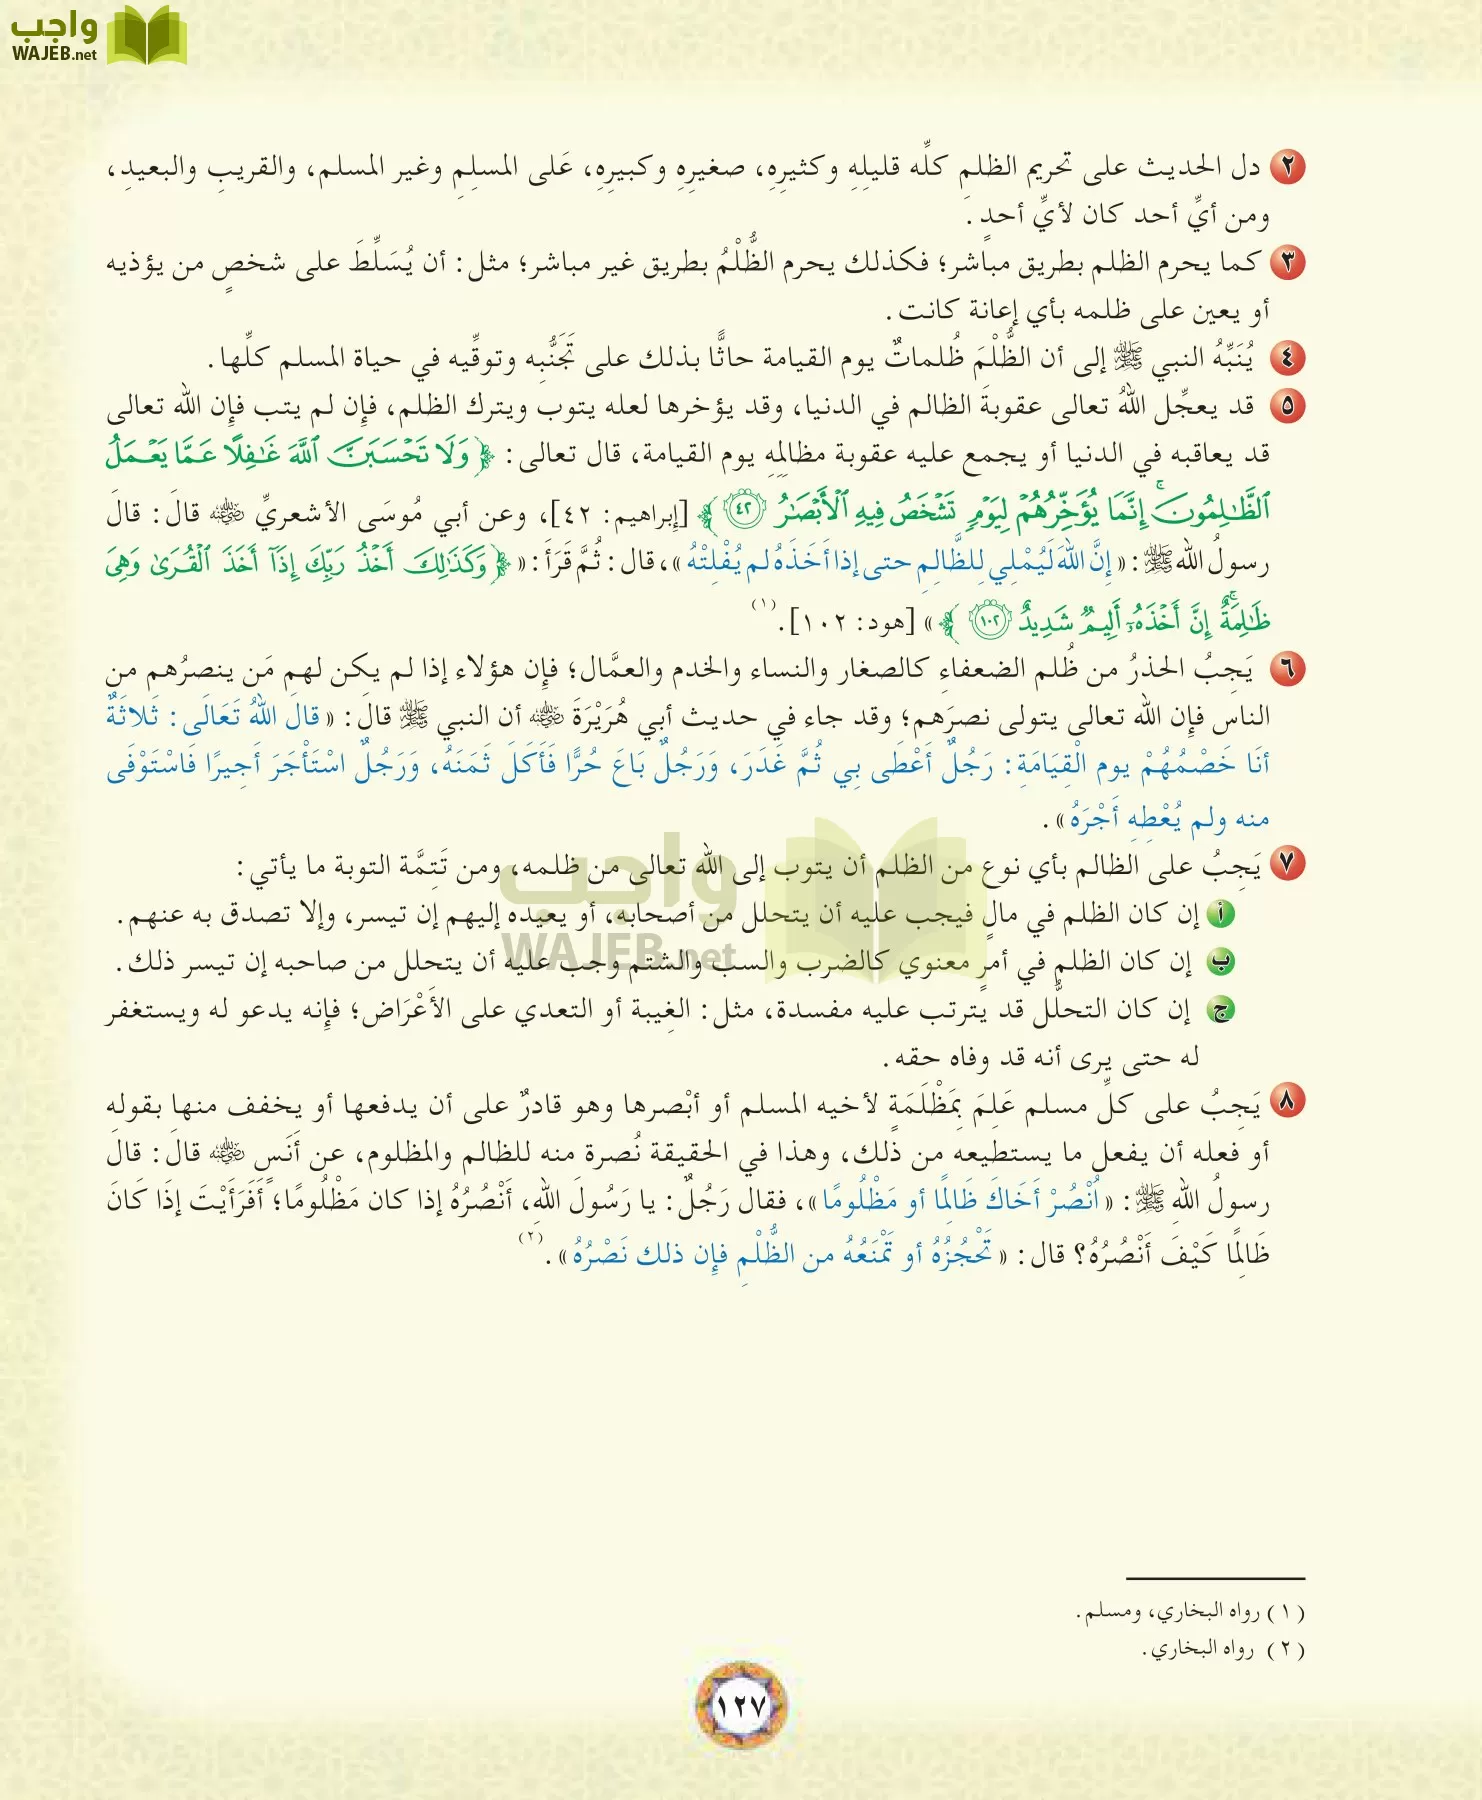 واجب
WAJEB.net
٢ دل الحديث على تحريم الظلمِ كلِّه قليلِهِ وكثيرِهِ، صغيرِهِ وكبيرِهِ، عَلى المسلِمِ وغير المسلم، والقريبِ والبعيدِ،
ومن أيِّ أحد كان لأيِّ أحدٍ.
٣ كما يحرم الظلم بطريق مباشر؛ فكذلك يحرم الظُّلْمُ بطريق غير مباشر؛ مثل: أن يُسَلِّطَ على شخصٍ من يؤذيه
أو يعين على ظلمه بأي إعانة كانت.
٤ يُنَبِّهُ النبي ﷺ إلى أن الظُّلْمَ ظُلماتٌ يوم القيامة حاثًّا بذلك على تَجَنُّبه وتوقِّيه في حياة المسلم كلِّها.
٥ قد يعجِّل اللهُ تعالى عقوبةَ الظالم في الدنيا، وقد يؤخرها لعله يتوب ويترك الظلم، فإن لم يتب فإن الله تعالى
قد يعاقبه في الدنيا أو يجمع عليه عقوبة مظالِمِهِ يوم القيامة، قال تعالى: ﴿ وَلَا تَحْسَبَنَّ ٱللَّهَ غَٰفِلًا عَمَّا يَعْمَلُ
ٱلظَّٰلِمُونَۚ إِنَّمَا يُؤَخِّرُهُمْ لِيَوْمٍ تَشْخَصُ فِيهِ ٱلْأَبْصَٰرُ ٤٢ ﴾ [إبراهيم: ٤٢]، وعن أبي مُوسَى الأشعريِّ رضي الله عنه قالَ: قالَ
رسولُ الله ﷺ: «إنَّ اللهَ لَيُمْلِي لِلظَّالِمِ حتى إذا أَخَذَهُ لم يُفْلِتْهُ»، قال: ثُمَّ قَرَأَ: «﴿ وَكَذَٰلِكَ أَخْذُ رَبِّكَ إِذَآ أَخَذَ ٱلْقُرَىٰ وَهِىَ
ظَٰلِمَةٌۚ إِنَّ أَخْذَهُۥٓ أَلِيمٌ شَدِيدٌ ١٠٢ ﴾» [هود: ١٠٢].(١)
٦ يَجِبُ الحذرُ من ظُلم الضعفاءِ كالصغار والنساء والخدم والعمَّال؛ فإن هؤلاء إذا لم يكن لهم مَن ينصرُهم من
الناس فإن الله تعالى يتولى نصرَهم؛ وقد جاء في حديث أبي هُرَيْرَةَ رضي الله عنه أن النبي ﷺ قالَ: «قالَ اللهُ تَعَالَى: ثَلاثَةٌ
أنَا خَصْمُهُمْ يوم الْقِيَامَةِ: رَجُلٌ أَعْطَى بِي ثُمَّ غَدَرَ، وَرَجُلٌ بَاعَ حُرًّا فَأَكَلَ ثَمَنَهُ، وَرَجُلٌ اسْتَأْجَرَ أَجِيرًا فَاسْتَوْفَى
منه ولم يُعْطِهِ أَجْرَهُ».
٧ يَجِبُ على الظالم بأي نوع من الظلم أن يتوب إلى الله تعالى من ظلمه، ومن تَتِمَّة التوبة ما يأتي:
أ إن كان الظلم في مالٍ فيجب عليه أن يتحلل من أصحابه، أو يعيده إليهم إن تيسر، وإلا تصدق به عنهم.
ب إن كان الظلم في أمرٍ معنوي كالضرب والسب والشتم وجب عليه أن يتحلل من صاحبه إن تيسر ذلك.
ج إن كان التحلُّل قد يترتب عليه مفسدة، مثل: الغِيبة أو التعدي على الأَعْرَاض؛ فإنه يدعو له ويستغفر
له حتى يرى أنه قد وفاه حقه.
٨ يَجِبُ على كلِّ مسلم عَلِمَ بِمَظْلَمَةٍ لأخيه المسلم أو أبْصرها وهو قادرٌ على أن يدفعها أو يخفف منها بقولِهِ
أو فعله أن يفعل ما يستطيعه من ذلك، وهذا في الحقيقة نُصرة منه للظالم والمظلوم، عن أَنَسٍ رضي الله عنه قال: قال
رسولُ اللهِ ﷺ: «اُنْصُرْ أَخَاكَ ظَالِمًا أو مَظْلُومًا»، فقال رَجُلٌ: يا رَسُولَ اللهِ، أَنْصُرُهُ إذا كان مَظْلُومًا؛ أَفَرَأَيْتَ إذَا كَانَ
ظَالِمًا كَيْفَ أَنْصُرُهُ؟ قال: «تَحْجُزُهُ أو تَمْنَعُهُ من الظُّلْمِ فإن ذلك نَصْرُهُ».(٢)
واجب
WAJEB.net
(١) رواه البخاري، ومسلم.
(٢) رواه البخاري.
١٢٧